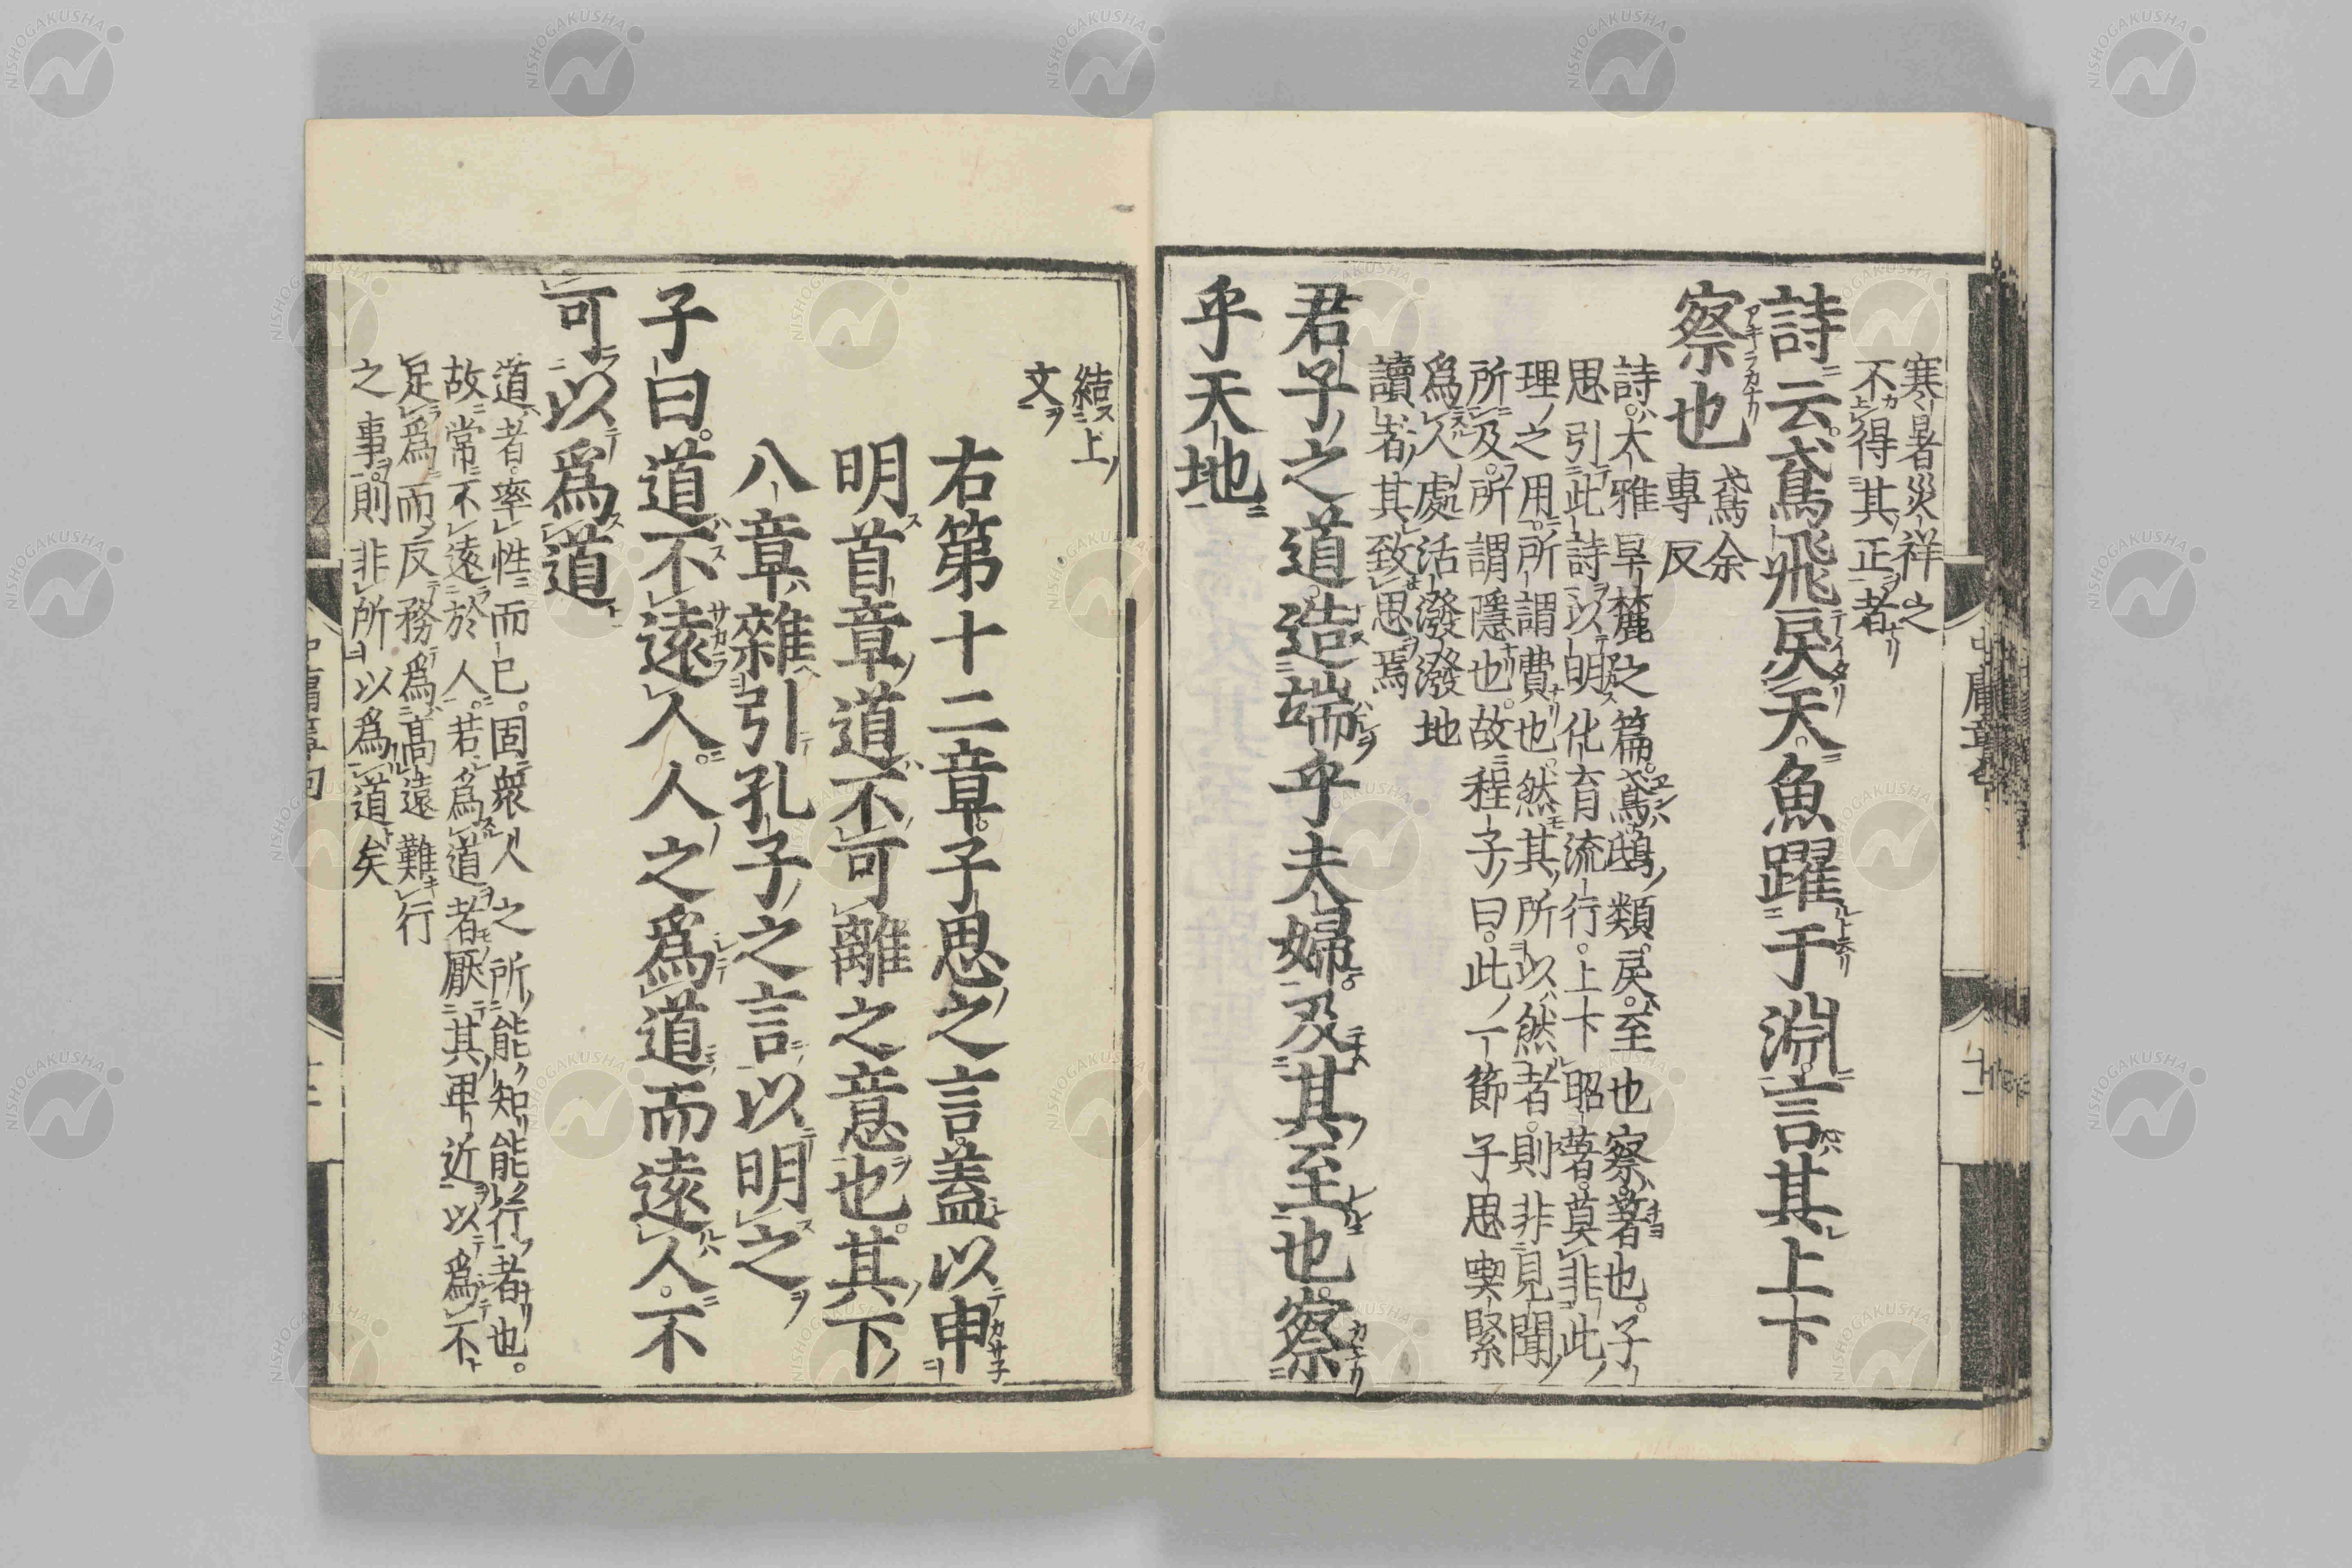 寒暑災祥之
不得其正者
詩云鳶飛戾天魚躍于淵言其上下
察也
鳶余
專反
詩大雅旱麓之篇鳶鴟類戾至也察著也子
思引此詩以明化育流行上下昭著莫非此
理之用所謂費也然其所以然者則非見聞
所及所謂隱也故程子曰此一節子思喫緊
爲人處活潑潑地
讀者其致思焉
君子之道造端乎夫婦及其至也察
乎天地
結上
文
右第十二章子思之言蓋以申
明首章道不可離之意也其下
八章雜引孔子之言以明之
子曰道不遠人人之爲道而遠人不
可以爲道
道者率性而已固衆人之所能知能行者也
故常不遠於人若爲道者厭其卑近以爲不
足爲而反務爲高遠難行
之事則非所以爲道矣
中庸章句
NISHOGAKUSHA